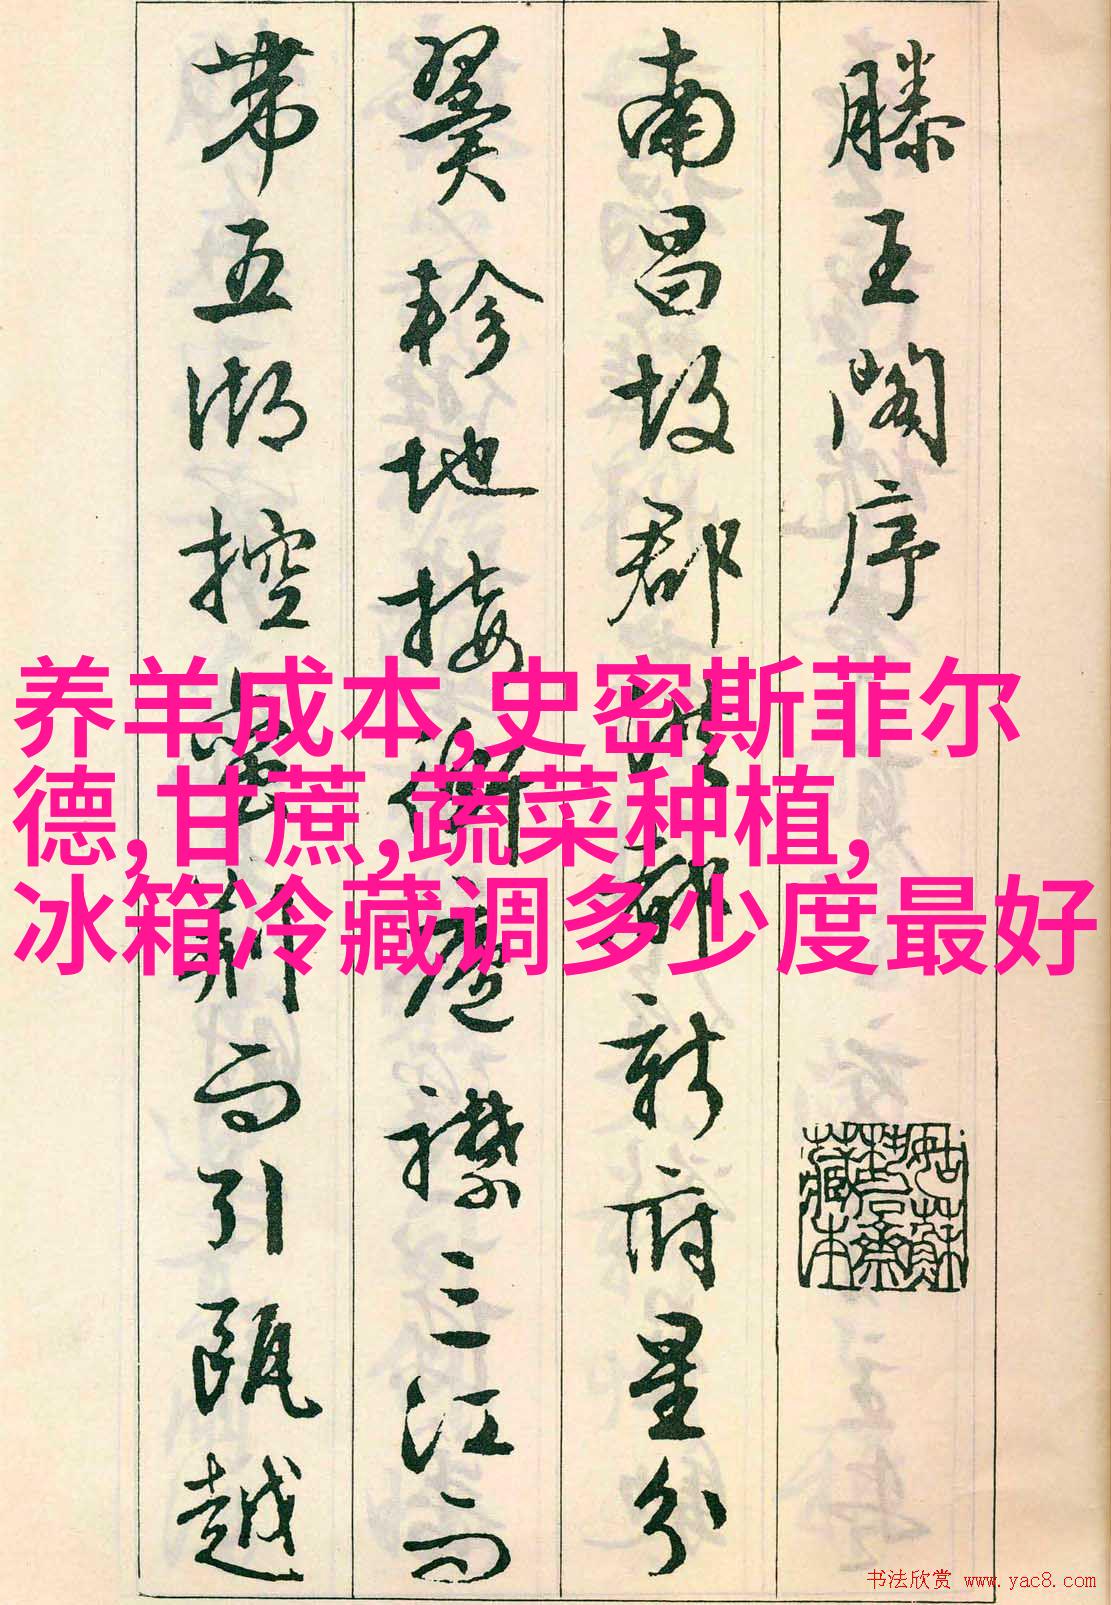 滕王閣序
南昌故郡洪都新府星分
翼軫地接衡廬襟三江而
帶五湖控蠻荊而引甌越
养羊成本,史密斯菲尔
德,甘蔗,蔬菜种植,
冰箱冷藏调多少度最好
姑蘇
藏本
书法欣赏 www.yac8.com